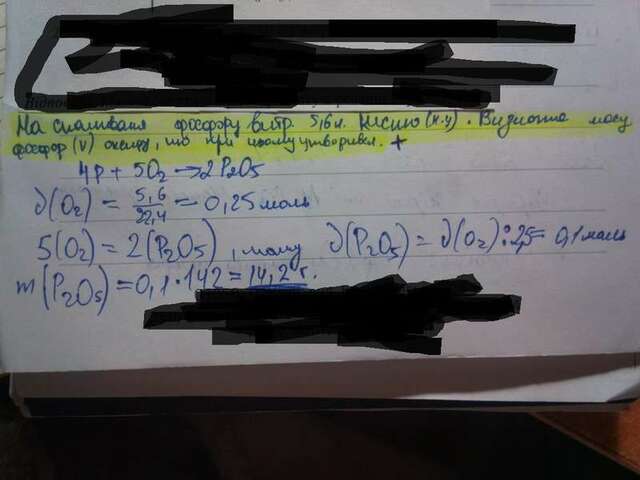 На спалювання фосфору витр. 5,6 л. кисню (н.у). Визначте масу
фосфор (V) оксиду, що при цьому утворився. +
4P + 5O₂ → 2P₂O₅
∂(O₂) = 5,6/22,4 = 0,25 моль
5(O₂) = 2(P₂O₅), тому ∂(P₂O₅) = ∂(O₂) : 2,5 = 0,1 моль
m(P₂O₅) = 0,1 · 142 = 14,2 г.